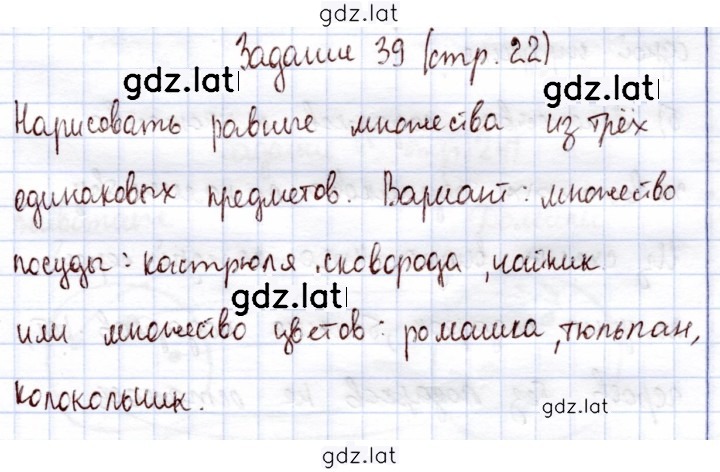 gdz.lat
Задание 39 (стр. 22)
gdz.lat
gdz.lat
Нарисовать равные множества из трёх
одинаковых предметов. Вариант: множество
посуды: кастрюля, сковорода, чайник
gdz.lat
или множество цветов: ромашка, тюльпан,
колокольчик.
gdz.lat
gdz.lat